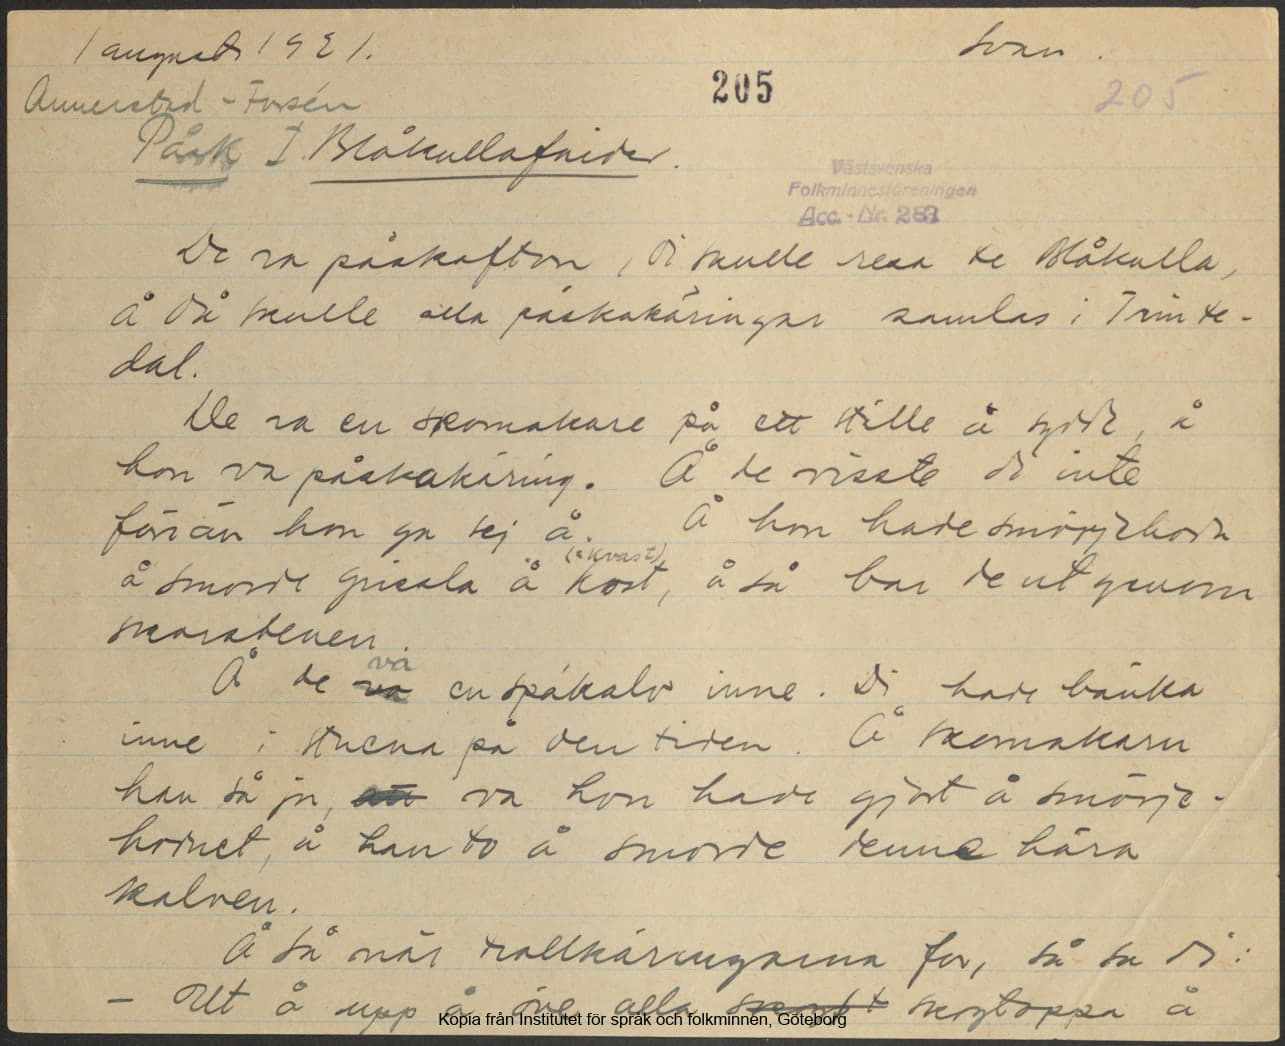 1 augusti 1921. Svan.
205
205
Annerstad - Forsén
Påsk I. Blåkullafärder.
Västsvenska
Folkminnesföreningen
Acc - Nr. 283
De va påskafton, di skulle resa te Blåkulla,
å då skulle alla påskakäringar samlas i Trinte-
dal.
De va en skomakare på ett ställe å sydde, å
hon va påskakäring. Å de visste di inte
förrän hon ga sej å. Å hon hade smörjehorn
(=kvast)
å smorde grissla å kost, å så bar de ut genom
skorstenen.
Å de va en spákalv inne. Di hade bänka
va
inne i stuena på den tiden. Å skomakarn
han så ju, att va hon hade gjort å smörje-
hornet, å han to å smorde denne hära
kalven.
Å så när trollkäringarna for, så sa di:
- Ut å upp å öve alla skogst skogtoppa å
Kopia från Institutet för språk och folkminnen, Göteborg